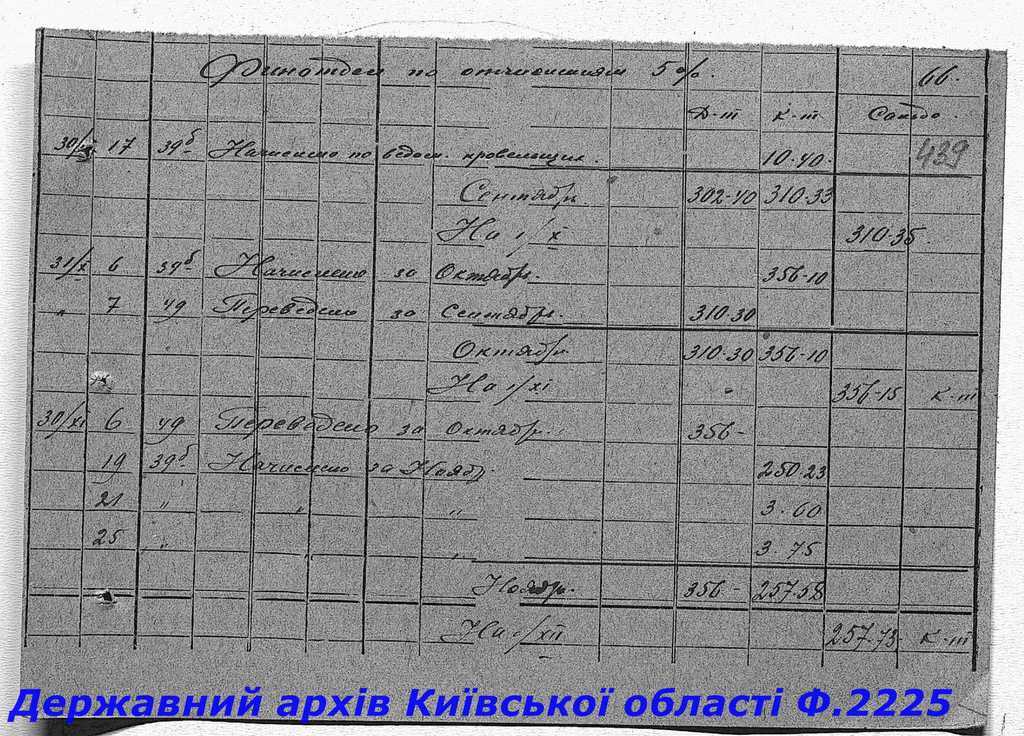 Финотдел по отчислениям 5%. 66.
Д-т К-т Сальдо.
439
30/IX 17 39б Начислено по ведом. кровельщик. 10-40.
Сентябрь 302-40 310-33
На 1/X 310-35.
31/X 6 39б Начислено за Октябрь. 356-10
" 7 49 Переведено за Сентябрь. 310-30
Октябрь 310-30 356-10
На 1/XI " 356-15 К-т
30/XI 6 49 Переведено за Октябрь. 356-
19 39б Начислено за Ноябр. 250-23
21 " " " 3.60
25 " " " 3.75
Ноябрь. 356- 257-58
На 1/XII 257-73- К-т
Державний архів Київської області Ф.2225